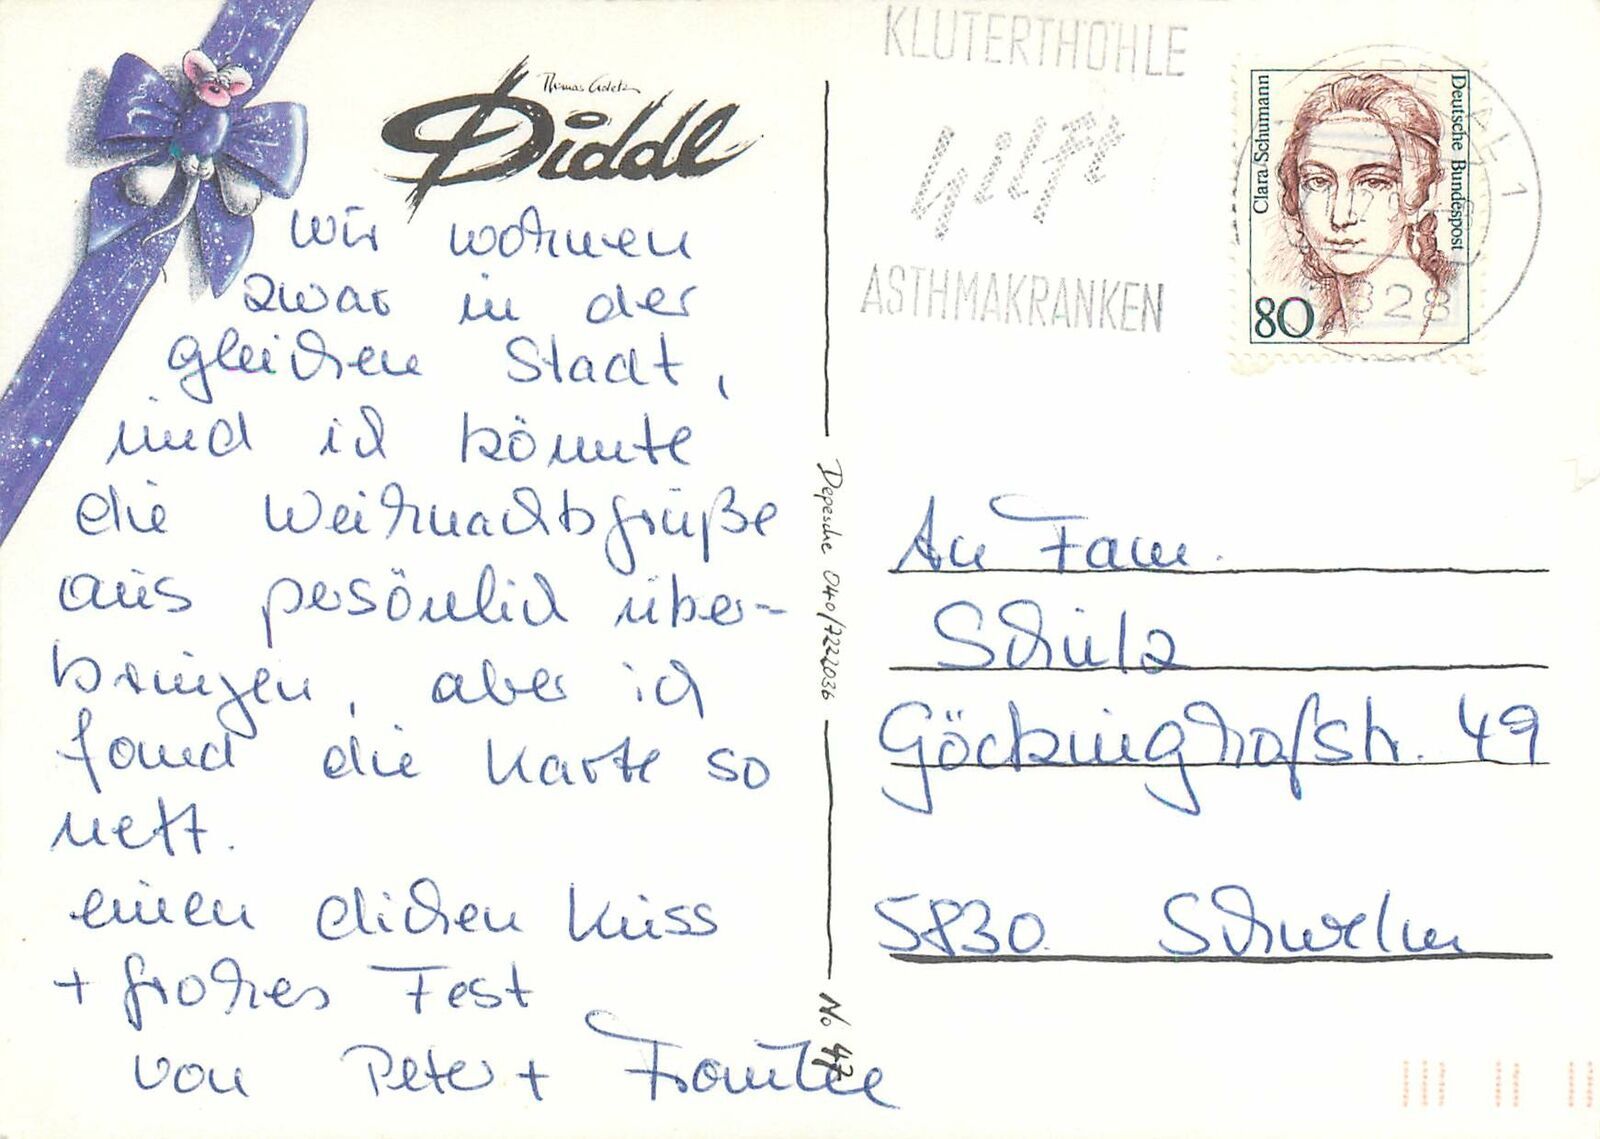 Thomas Goletz
Diddl
Wir wohnen
zwar in der
gleichen Stadt,
und ich könnte
die Weihnachtsgrüße
aus pesönlich über-
bringen, aber ich
fand die Karte so
nett.
einen dicken Kuss
+ frohes Fest
von Peter +
Depesche 040/7222036
No 47
KLUTERTHÖHLE
hilft
ASTHMAKRANKEN
Clara Schumann
Deutsche Bundespost
80
5828
An Fam.
Schulz
Göckinghofstr. 49
5830 Schwelm